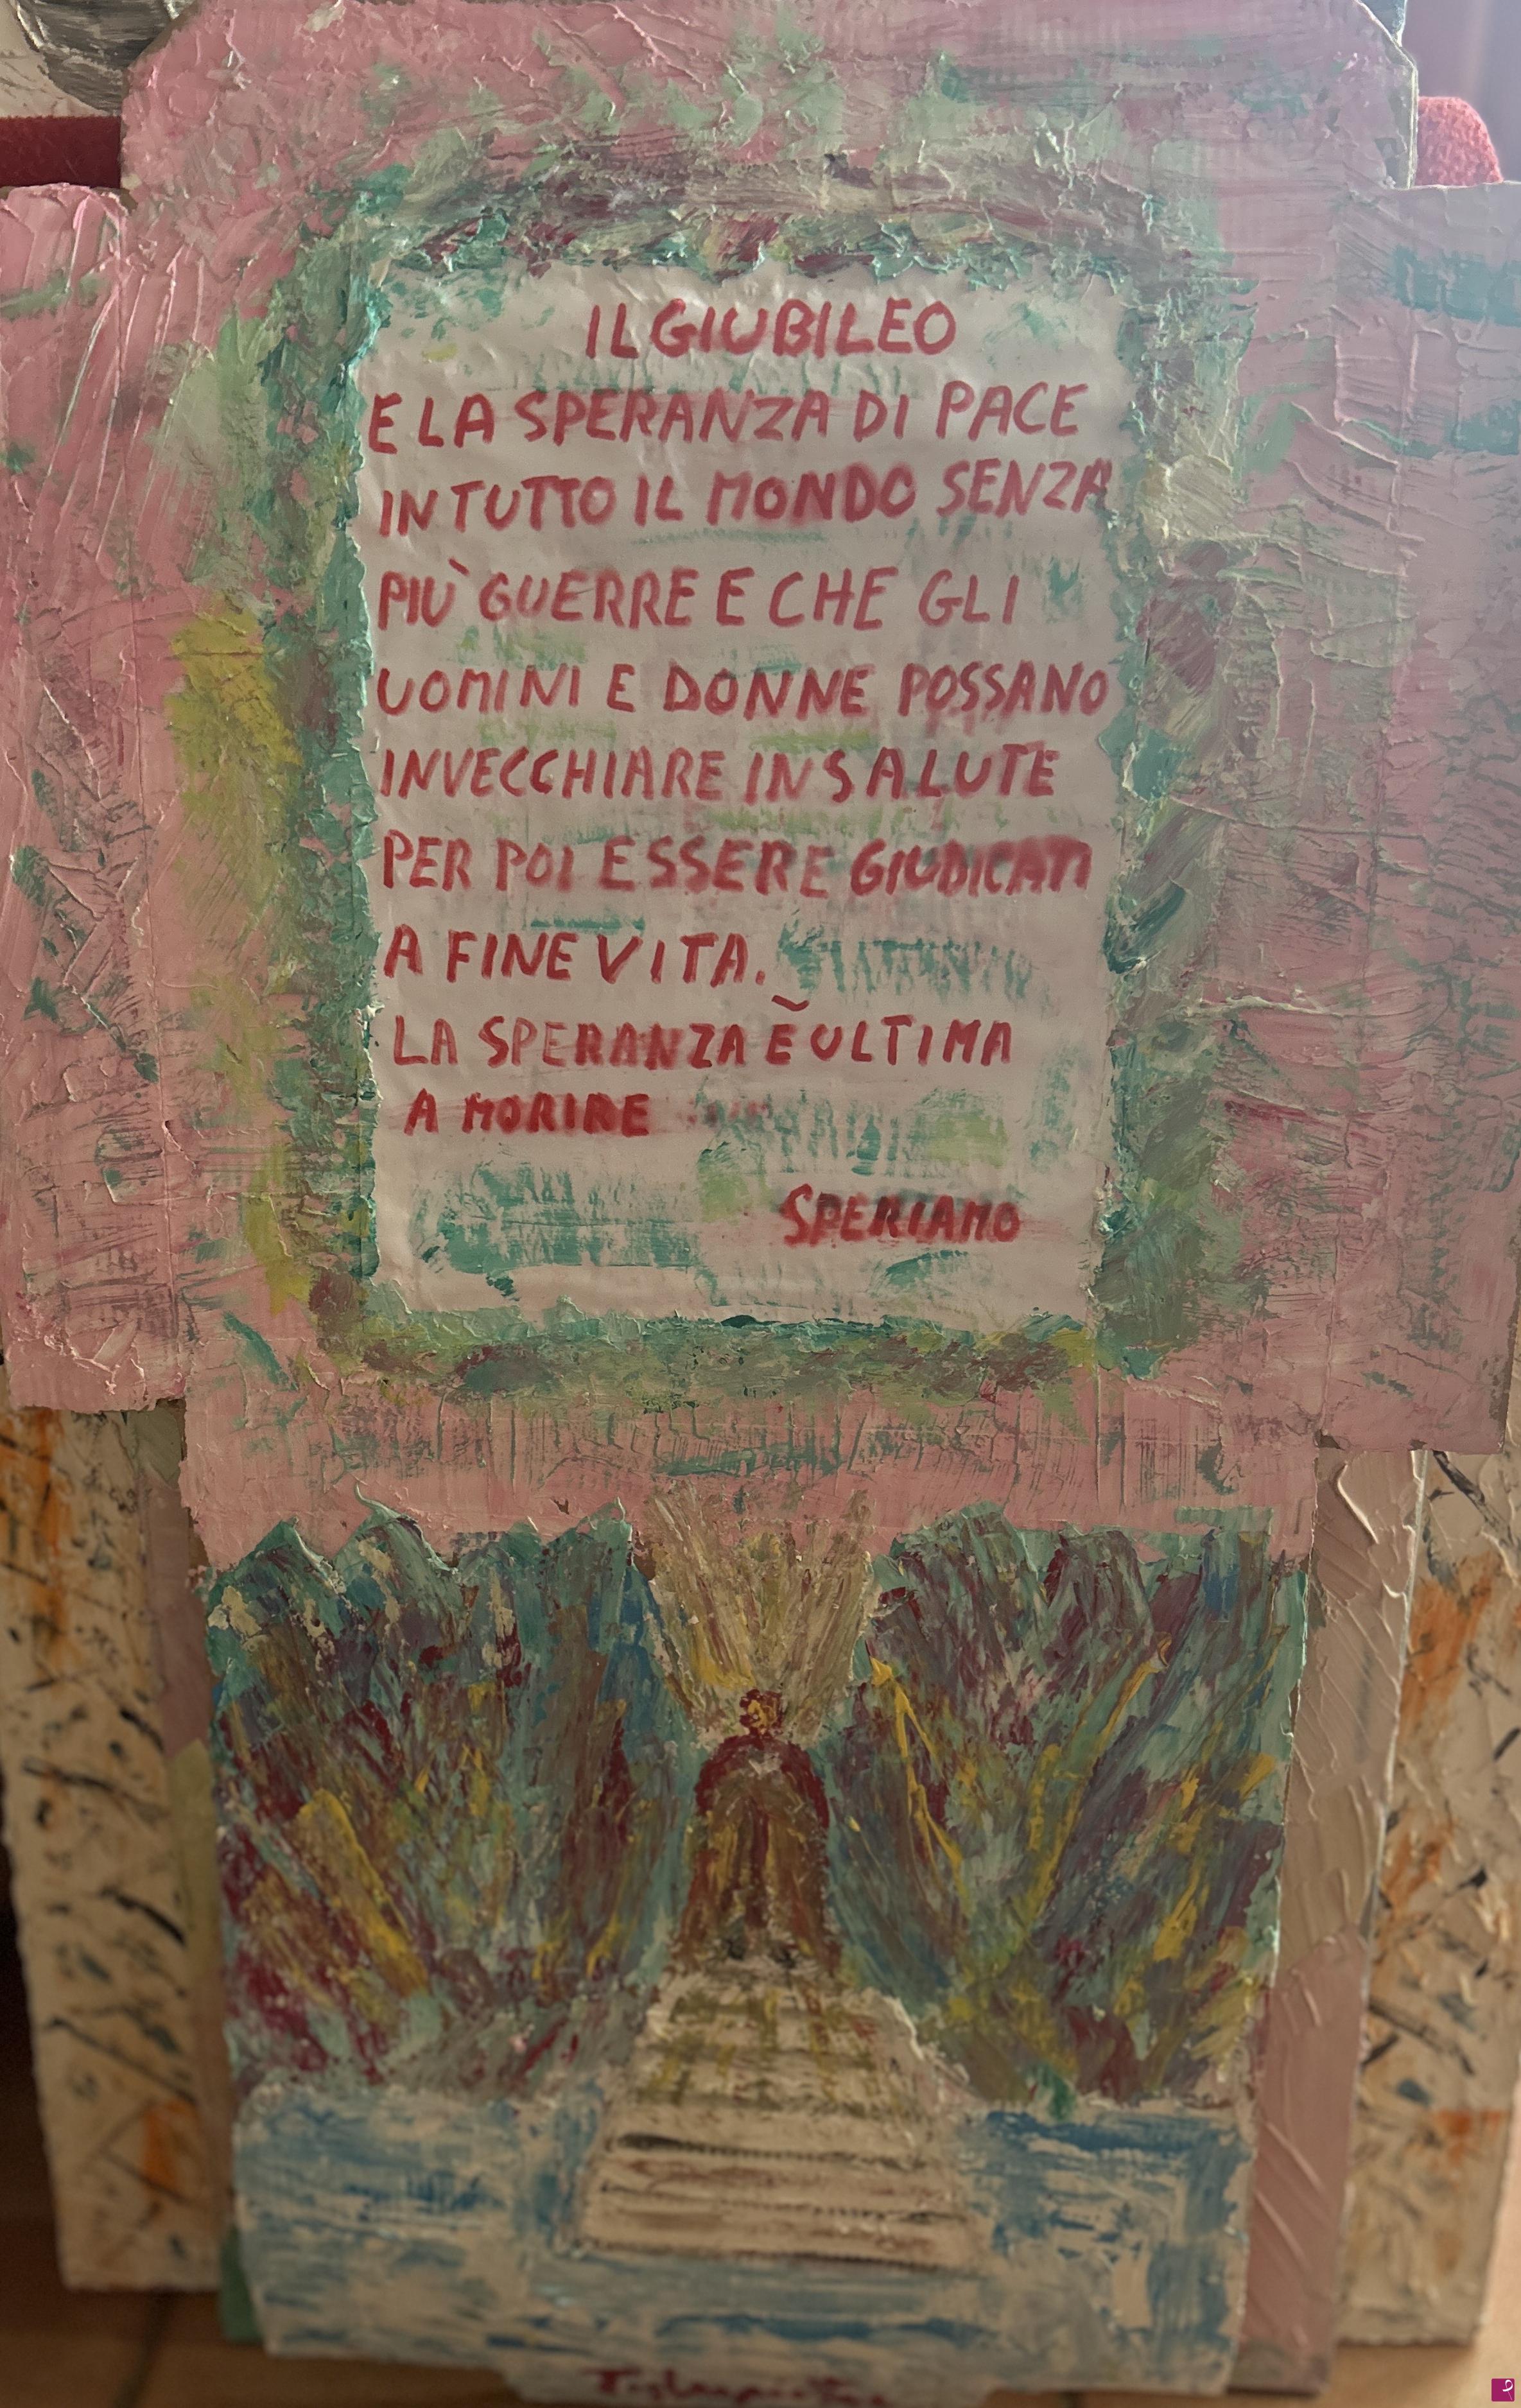 IL GIUBILEO
E LA SPERANZA DI PACE
IN TUTTO IL MONDO SENZA
PIÙ GUERRE E CHE GLI
UOMINI E DONNE POSSANO
INVECCHIARE IN SALUTE
PER POI ESSERE GIUDICATI
A FINE VITA.
LA SPERANZA È ULTIMA
A MORIRE
SPERIAMO